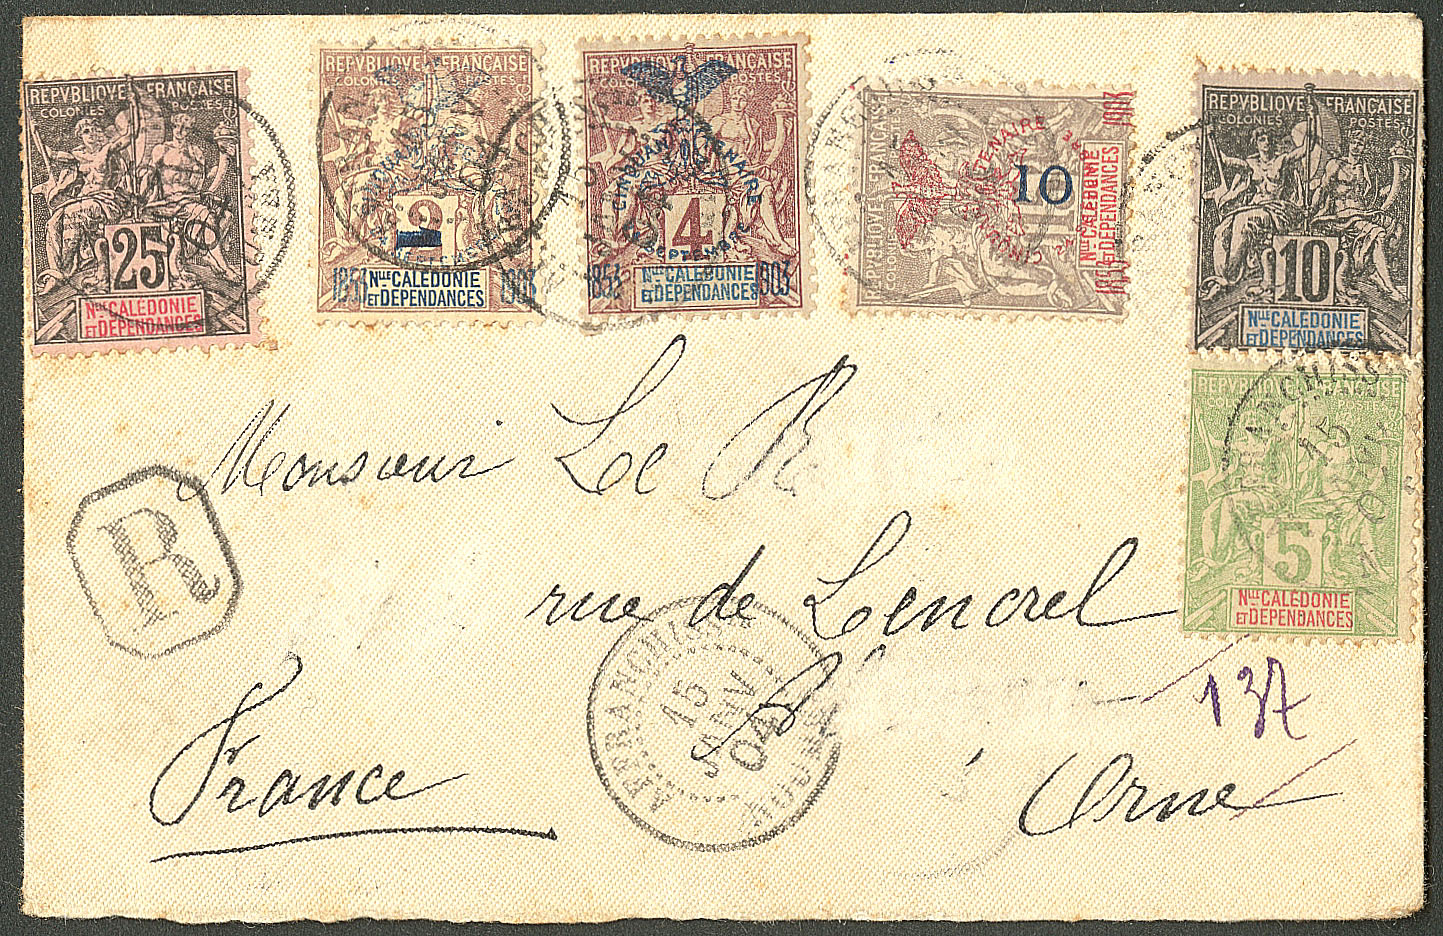 REPVBLIQVE FRANÇAISE
COLONIES POSTES
25
Nlle CALÉDONIE
ET DÉPENDANCES
REPVBLIQVE FRANÇAISE
COLONIES
2
1
1853 1903
Nlle CALÉDONIE
ET DÉPENDANCES
REPVBLIQVE FRANÇAISE
POSTES
CINQUANTENAIRE
4
24 SEPTEMBRE
1853 1903
Nlle CALÉDONIE
ET DÉPENDANCES
REPVBLIQVE FRANÇAISE
CINQUANTENAIRE
10
1903
Nlle CALÉDONIE
ET DÉPENDANCES
REPVBLIQVE FRANÇAISE
COLONIES POSTES
10
Nlle CALÉDONIE
ET DÉPENDANCES
REPVBLIQVE FRANÇAISE
15
5
Nlle CALÉDONIE
ET DÉPENDANCES
Monsieur Le R
R
rue de Lencrel
137
AFFRANCHISSts
15
JANV
04
NOUMEA
France
Orne